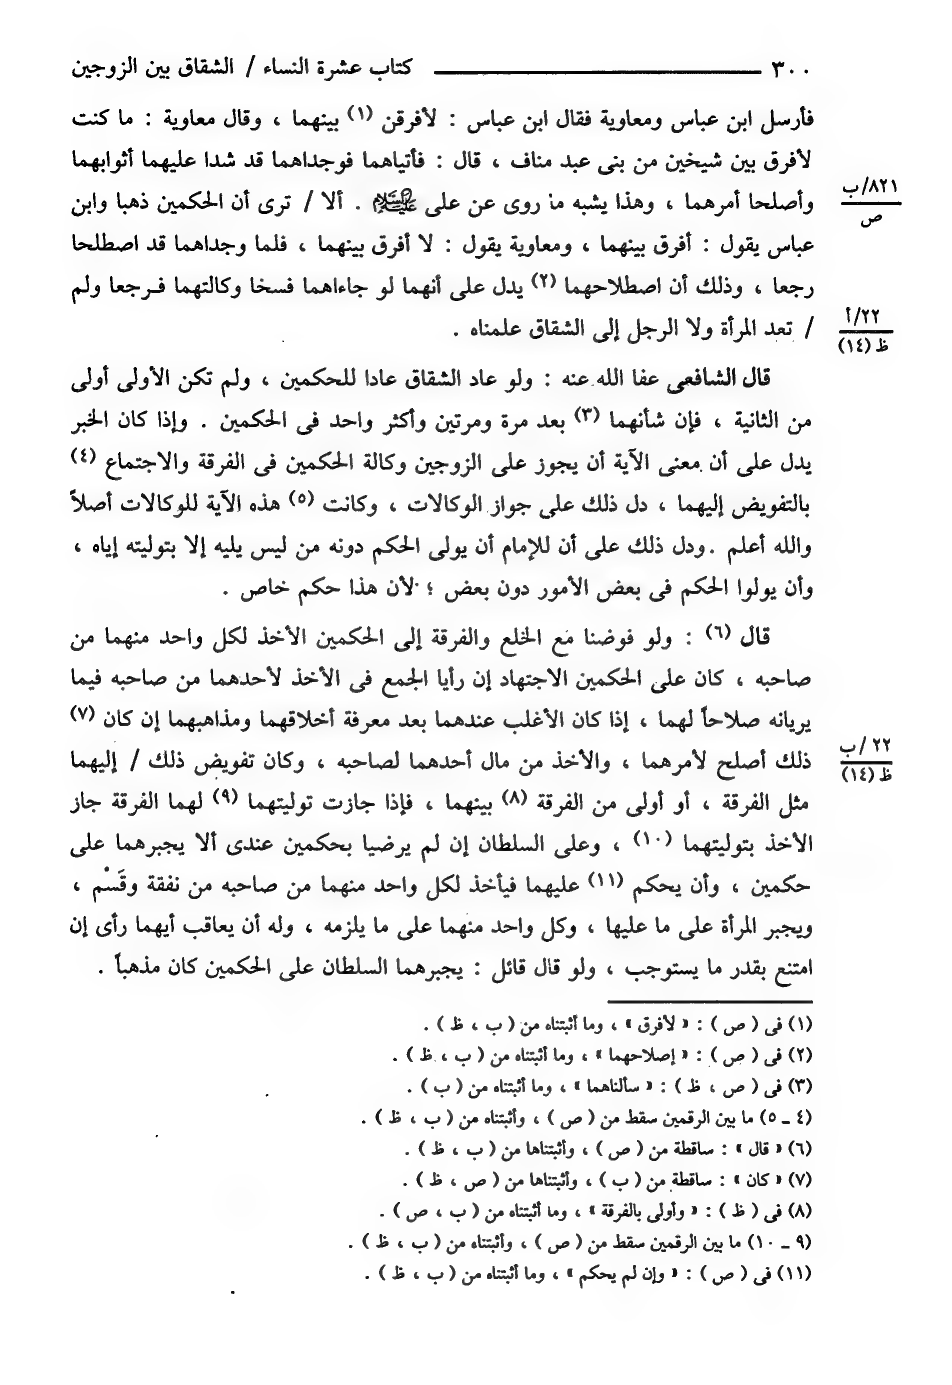 ٣٠٠ ـــــــــ كتاب عشرة النساء / الشقاق بين الزوجين
فأرسل ابن عباس ومعاوية فقال ابن عباس : لأفرقن (١) بينهما ، وقال معاوية : ما كنت
لأفرق بين شيخين من بنى عبد مناف ، قال : فأتياهما فوجداهما قد شدا عليهما أثوابهما
وأصلحا أمرهما ، وهذا يشبه ما روى عن على عليه السلام . ألا / ترى أن الحكمين ذهبا وابن
٨٢١/ب
ص
عباس يقول : أفرق بينهما ، ومعاوية يقول : لا أفرق بينهما ، فلما وجداهما قد اصطلحا
رجعا ، وذلك أن اصطلاحهما (٢) يدل على أنهما لو جاءاهما فسخا وكالتهما فرجعا ولم
/ تعد المرأة ولا الرجل إلى الشقاق علمناه .
٢٢/أ
ظ (١٤)
قال الشافعى عفا الله عنه : ولو عاد الشقاق عادا للحكمين ، ولم تكن الأولى أولى
من الثانية ، فإن شأنهما (٣) بعد مرة ومرتين وأكثر واحد فى الحكمين . وإذا كان الخبر
يدل على أن معنى الآية أن يجوز على الزوجين وكالة الحكمين فى الفرقة والاجتماع (٤)
بالتفويض إليهما ، دل ذلك على جواز الوكالات ، وكانت (٥) هذه الآية للوكالات أصلاً
والله أعلم . ودل ذلك على أن للإمام أن يولى الحكم دونه من ليس يليه إلا بتوليته إياه ،
وأن يولوا الحكم فى بعض الأمور دون بعض ؛ لأن هذا حكم خاص .
قال (٦) : ولو فوضنا مع الخلع والفرقة إلى الحكمين الأخذ لكل واحد منهما من
صاحبه ، كان على الحكمين الاجتهاد إن رأيا الجمع فى الأخذ لأحدهما من صاحبه فيما
يريانه صلاحاً لهما ، إذا كان الأغلب عندهما بعد معرفة أخلاقهما ومذاهبهما إن كان (٧)
ذلك أصلح لأمرهما ، والأخذ من مال أحدهما لصاحبه ، وكان تفويض ذلك / إليهما
٢٢ /ب
ظ (١٤)
مثل الفرقة ، أو أولى من الفرقة (٨) بينهما ، فإذا جازت توليتهما (٩) لهما الفرقة جاز
الأخذ بتوليتهما (١٠) ، وعلى السلطان إن لم يرضيا بحكمين عندى ألا يجبرهما على
حكمين ، وأن يحكم (١١) عليهما فيأخذ لكل واحد منهما من صاحبه من نفقة وقَسْم ،
ويجبر المرأة على ما عليها ، وكل واحد منهما على ما يلزمه ، وله أن يعاقب أيهما رأى إن
امتنع بقدر ما يستوجب ، ولو قال قائل : يجبرهما السلطان على الحكمين كان مذهباً .
(١) فى ( ص ) : « لأفرق » ، وما أثبتناه من ( ب ، ظ ) .
(٢) فى ( ص ) : « إصلاحهما » ، وما أثبتناه من ( ب ، ظ ) .
(٣) فى ( ص ، ظ ) : « سألناهما » ، وما أثبتناه من ( ب ) .
(٤ ـ ٥) ما بين الرقمين سقط من ( ص ) ، وأثبتناه من ( ب ، ظ ) .
(٦) « قال » : ساقطة من ( ص ) ، وأثبتناها من ( ب ، ظ ) .
(٧) « كان » : ساقطة من ( ب ) ، وأثبتناها من ( ص ، ظ ) .
(٨) فى ( ظ ) : « وأولى بالفرقة » ، وما أثبتناه من ( ب ، ص ) .
(٩ ـ ١٠) ما بين الرقمين سقط من ( ص ) ، وأثبتناه من ( ب ، ظ ) .
(١١) فى ( ص ) : « وإن لم يحكم » ، وما أثبتناه من ( ب ، ظ ) .